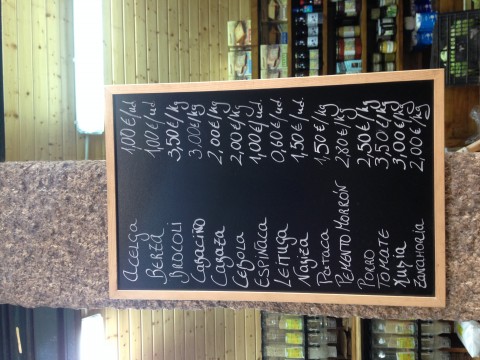 Acelga 1,00€/ud.
BERZA 1,00€/ud.
BROCOLI 3,50€/kg
CABACIÑO 3,00€/kg
CABAZA 2,00€/kg
CEBOLA 2,00€/kg
ESPINACA 1,00€/ud.
LEITUGA 0,60€/ud.
NABIZA 1,50€/ud.
PATACA 1,50€/kg
PEMENTO MORRÓN 2,80€/kg
PORRO 2,50€/kg
TOMATE 3,50€/kg
XUDÍA 3,00€/kg
ZANAHORIA 2,00€/kg